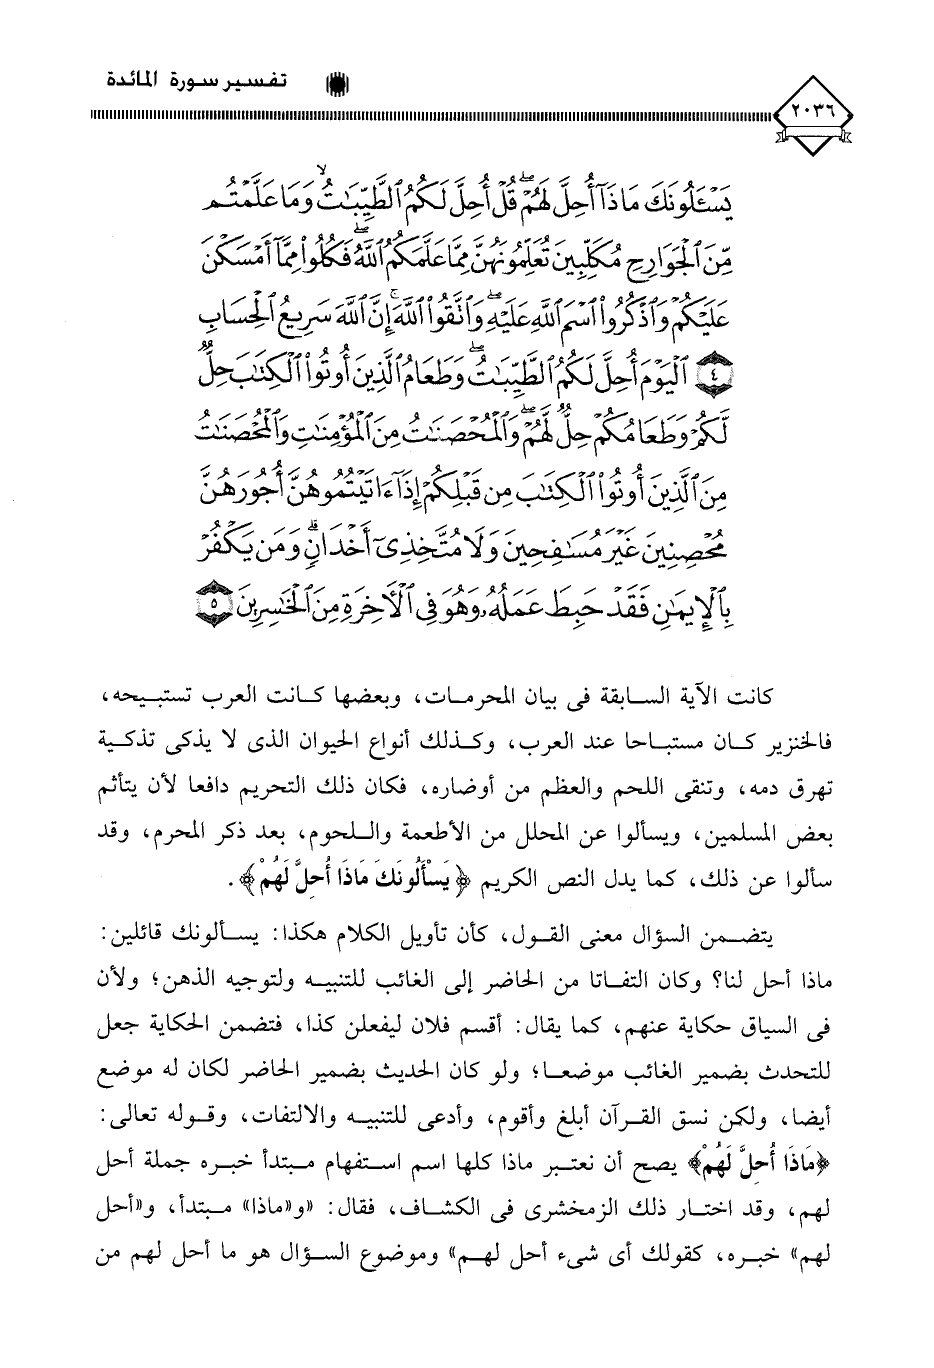 تفسير سورة المائدة
٢٠٣٦
يَسْـَٔلُونَكَ مَاذَآ أُحِلَّ لَهُمْ ۖ قُلْ أُحِلَّ لَكُمُ ٱلطَّيِّبَـٰتُ ۙ وَمَا عَلَّمْتُم
مِّنَ ٱلْجَوَارِحِ مُكَلِّبِينَ تُعَلِّمُونَهُنَّ مِمَّا عَلَّمَكُمُ ٱللَّهُ ۖ فَكُلُوا۟ مِمَّآ أَمْسَكْنَ
عَلَيْكُمْ وَٱذْكُرُوا۟ ٱسْمَ ٱللَّهِ عَلَيْهِ ۖ وَٱتَّقُوا۟ ٱللَّهَ ۚ إِنَّ ٱللَّهَ سَرِيعُ ٱلْحِسَابِ
٤ ٱلْيَوْمَ أُحِلَّ لَكُمُ ٱلطَّيِّبَـٰتُ ۖ وَطَعَامُ ٱلَّذِينَ أُوتُوا۟ ٱلْكِتَـٰبَ حِلٌّ
لَّكُمْ وَطَعَامُكُمْ حِلٌّ لَّهُمْ ۖ وَٱلْمُحْصَنَـٰتُ مِنَ ٱلْمُؤْمِنَـٰتِ وَٱلْمُحْصَنَـٰتُ
مِنَ ٱلَّذِينَ أُوتُوا۟ ٱلْكِتَـٰبَ مِن قَبْلِكُمْ إِذَآ ءَاتَيْتُمُوهُنَّ أُجُورَهُنَّ
مُحْصِنِينَ غَيْرَ مُسَـٰفِحِينَ وَلَا مُتَّخِذِىٓ أَخْدَانٍ ۗ وَمَن يَكْفُرْ
بِٱلْإِيمَـٰنِ فَقَدْ حَبِطَ عَمَلُهُۥ وَهُوَ فِى ٱلْـَٔاخِرَةِ مِنَ ٱلْخَـٰسِرِينَ ٥
كانت الآية السابقة فى بيان المحرمات، وبعضها كانت العرب تستبيحه،
فالخنزير كان مستباحا عند العرب، وكذلك أنواع الحيوان الذى لا يذكى تذكية
تهرق دمه، وتنقى اللحم والعظم من أوضاره، فكان ذلك التحريم دافعا لأن يتأثم
بعض المسلمين، ويسألوا عن المحلل من الأطعمة واللحوم، بعد ذكر المحرم، وقد
سألوا عن ذلك، كما يدل النص الكريم ﴿يَسْأَلُونَكَ مَاذَا أُحِلَّ لَهُمْ﴾.
يتضمن السؤال معنى القول، كأن تأويل الكلام هكذا: يسألونك قائلين:
ماذا أحل لنا؟ وكان التفاتا من الحاضر إلى الغائب للتنبيه ولتوجيه الذهن؛ ولأن
فى السياق حكاية عنهم، كما يقال: أقسم فلان ليفعلن كذا، فتضمن الحكاية جعل
للتحدث بضمير الغائب موضعا؛ ولو كان الحديث بضمير الحاضر لكان له موضع
أيضا، ولكن نسق القرآن أبلغ وأقوم، وأدعى للتنبيه والالتفات، وقوله تعالى:
﴿مَاذَا أُحِلَّ لَهُمْ﴾ يصح أن نعتبر ماذا كلها اسم استفهام مبتدأ خبره جملة أحل
لهم، وقد اختار ذلك الزمخشرى فى الكشاف، فقال: «و«ماذا» مبتدأ، و«أحل
لهم» خبره، كقولك أى شىء أحل لهم» وموضوع السؤال هو ما أحل لهم من